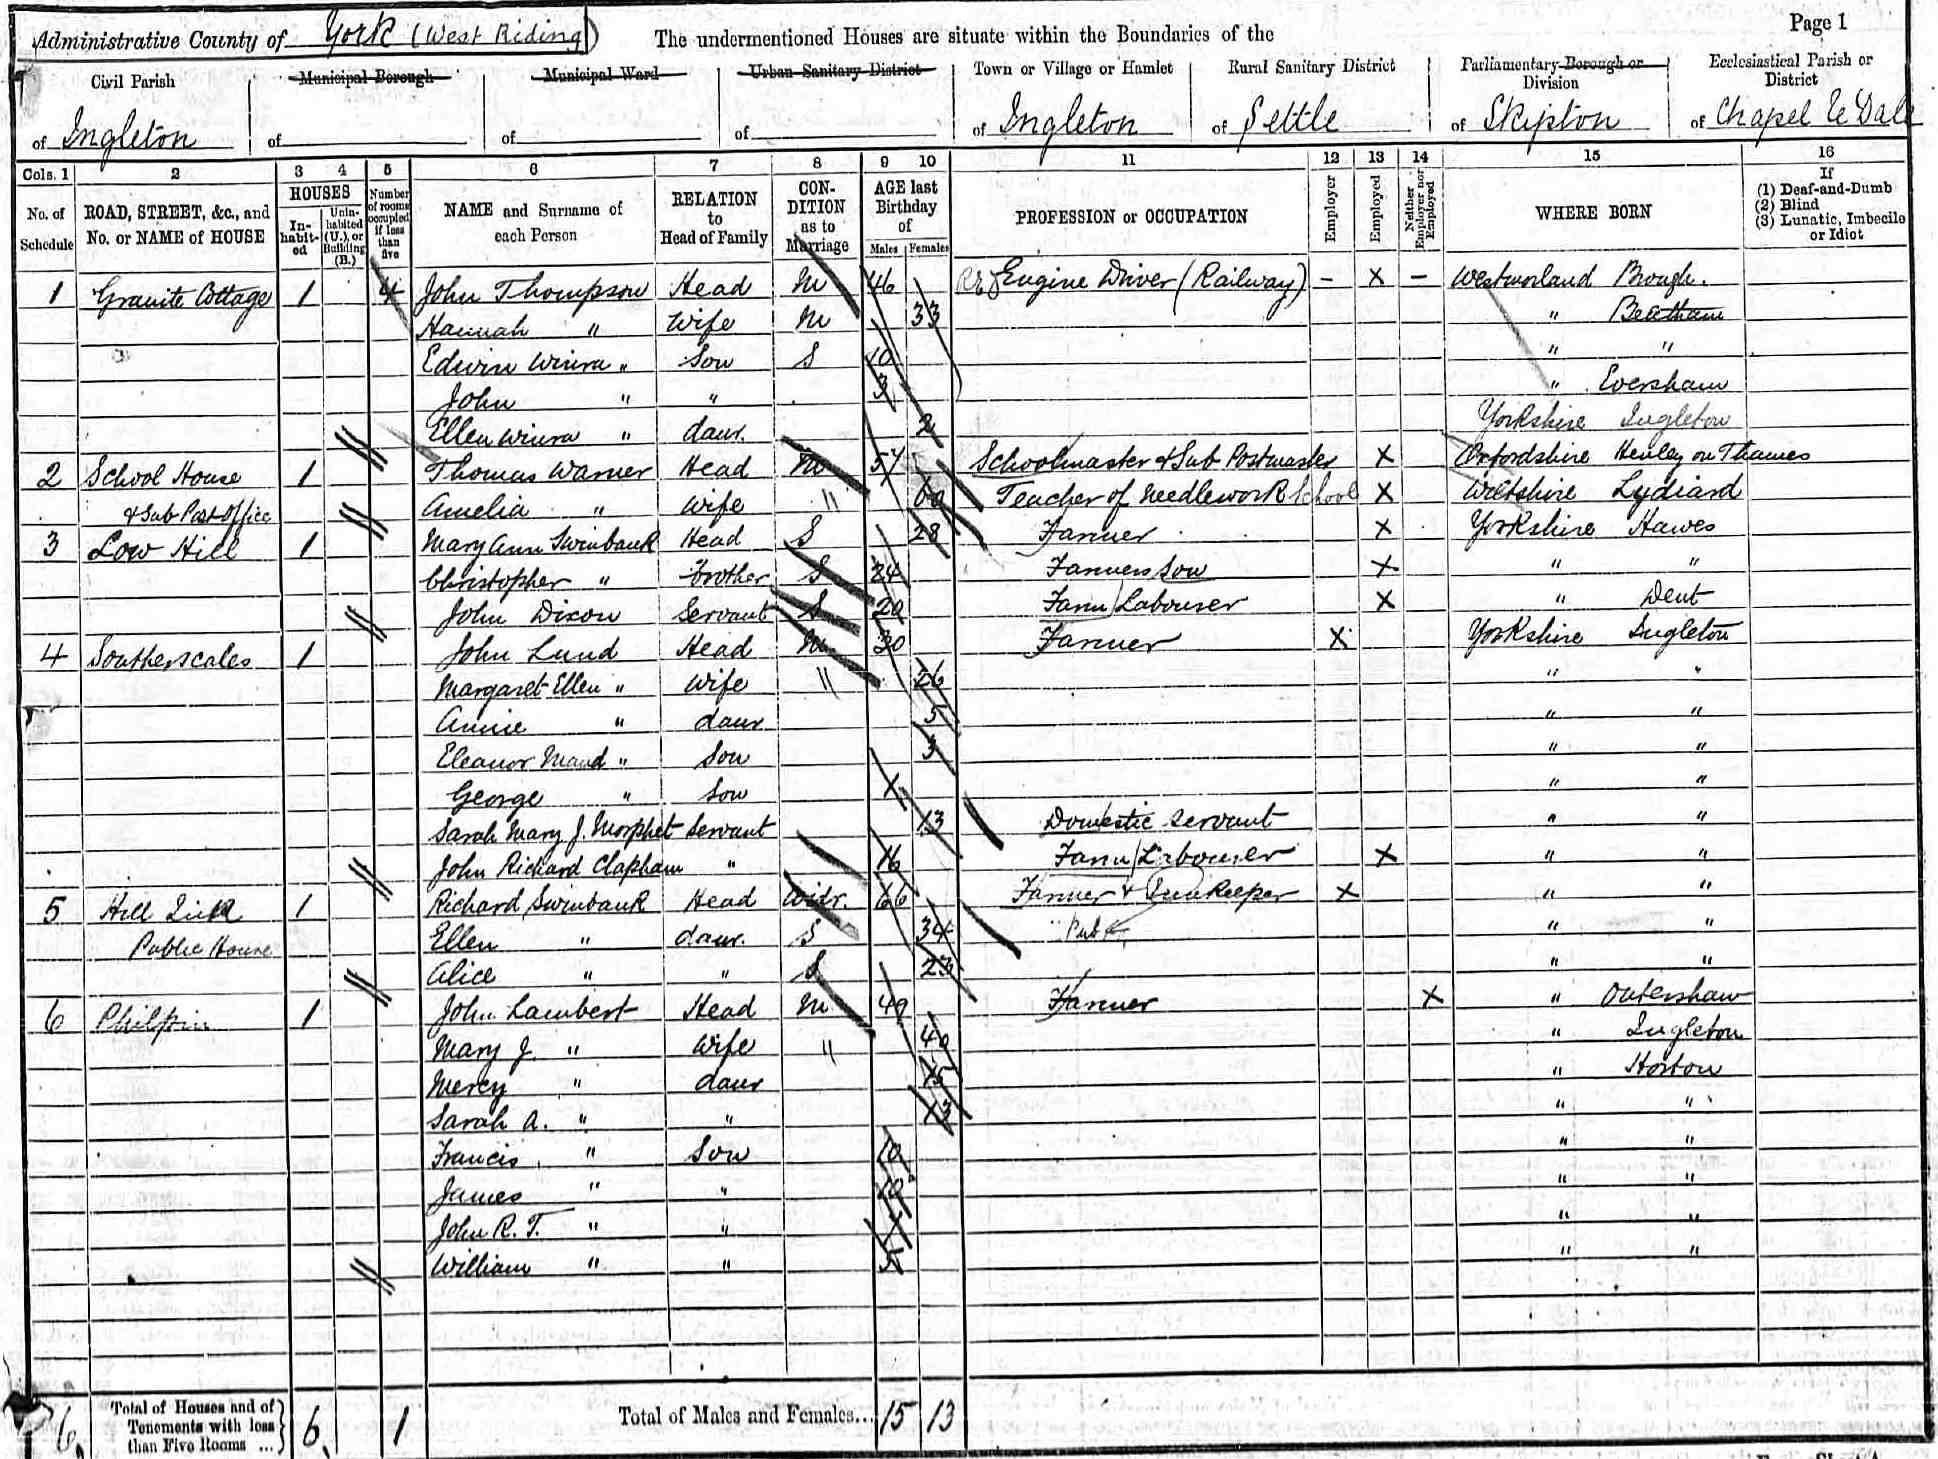 Page 1
Administrative County of York (West Riding) The undermentioned Houses are situate within the Boundaries of the
Civil Parish Municipal Borough Municipal Ward Urban Sanitary District Town or Village or Hamlet Rural Sanitary District Parliamentary Borough or Division Ecclesiastical Parish or District
of Ingleton of of of of Ingleton of Settle of Skipton of Chapel le Dale
Cols. 1 2 3 4 5 6 7 8 9 10 11 12 13 14 15 16
No. of Schedule ROAD, STREET, &c., and No. or NAME of HOUSE HOUSES Inhabited Uninhabited (U.), or Building (B.) Number of rooms occupied if less than five NAME and Surname of each Person RELATION to Head of Family CONDITION as to Marriage AGE last Birthday of Males Females PROFESSION or OCCUPATION Employer Employed Neither Employer nor Employed WHERE BORN If (1) Deaf-and-Dumb (2) Blind (3) Lunatic, Imbecile or Idiot
1 Granite Cottage 1 4 John Thompson Head M 46 Engine Driver (Railway) – X – Westmorland Brough.
Hannah " Wife M 33 "
Edwin " Son S 10 " "
John " " 3 " Eversham
Ellen " daur. 2 Yorkshire Ingleton
2 School House 1 Thomas Warner Head M 57 Schoolmaster & Sub Postmaster X Oxfordshire Henley on Thames
& Sub Post Office Amelia " Wife " 60 Teacher of Needlework School X Wiltshire Lydiard
3 Low Hill 1 Mary Ann Swinbank Head S 28 Farmer X Yorkshire Hawes
Christopher " brother S 24 Farmers Son X " "
John Dixon Servant S 20 Farm Labourer X " Dent
4 Southerscales 1 John Lund Head M 30 Farmer X Yorkshire Ingleton
Margaret Ellen " Wife " 26 " "
Annie " daur 5 " "
Eleanor Maud " Son 3 " "
George " Son 1 " "
Sarah Mary J. Morphet Servant 13 Domestic Servant " "
John Richard Clapham " 16 Farm Labourer X " "
5 Hill Inn 1 Richard Swinbank Head Widr. 66 Farmer & Innkeeper X " "
Public House Ellen " daur. S 34 " "
Alice " " S 23 " "
6 Philpin 1 John Lambert Head M 49 Farmer X " Outershaw
Mary J. " Wife " 40 " Ingleton
Mercy " daur 15 " Horton
Sarah A. " " 13 " "
Francis " Son 10 " "
James " " " "
John R. T. " " " "
William " " 5 " "
6 Total of Houses and of Tenements with less than Five Rooms ... 6 1 Total of Males and Females... 15 13